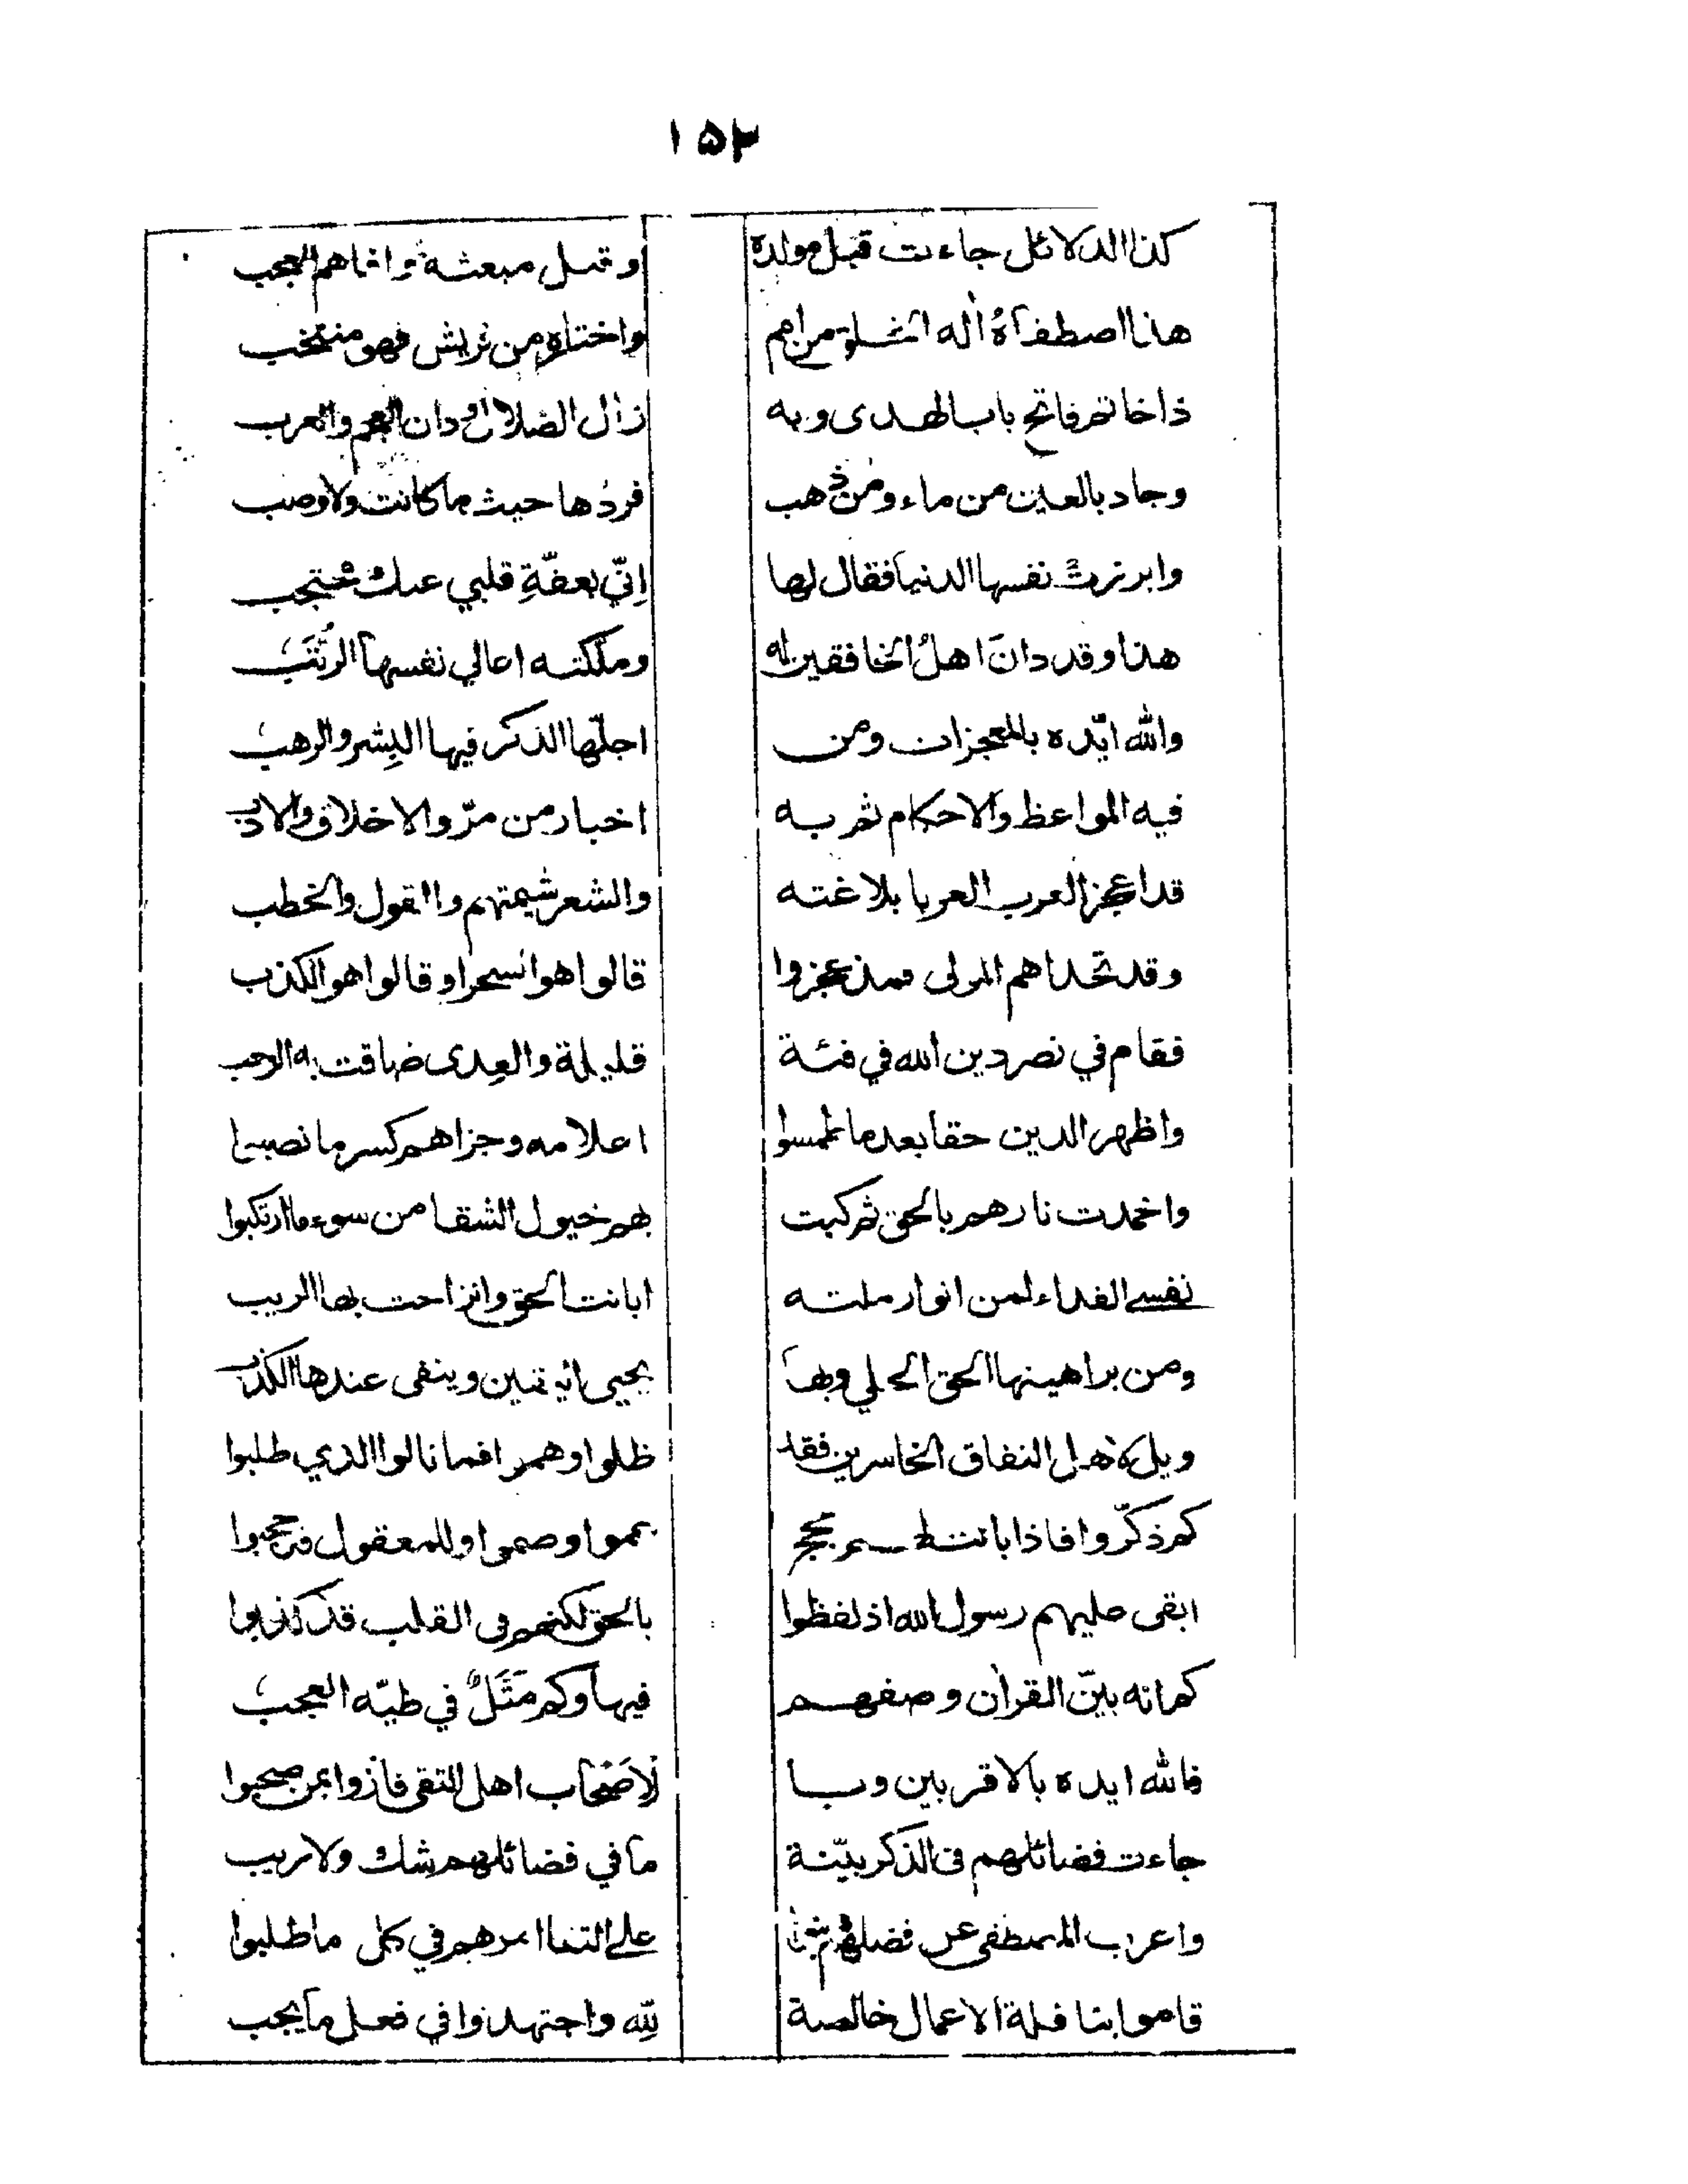 ١٥٢
كذا الدلائل جاءت قبل مولده وقبل مبعثه واتاهم العجب
هذا اصطفاهُ اله الخلق من امم واختاره من قريش فهو منتخب
ذا خاتم فاتح باب الهدى وبه زال الضلال ودان العجم والعرب
وجاد بالعين من ماء ومن ذهب فردها حيث ما كانت ولا وصب
وابرزتْ نفسها الدنيا فقال لها اِنّي بعفّةِ قلبي عنك محتجب
هذا وقد دانَ اهلُ الخافقين له وملّكته اعالي نفسها الرُّتَبُ
والله ايّده بالمعجزات ومن اجلّها الذكر فيها البِشر والرهبُ
فيه المواعظ والاحكام ثم به اخبار من مرّ والاخلاق والادب
قد اعجز العرب العربا بلاغته والشعر شيمتهم والقول والخطب
وقد تحداهم المولى فمذ عجزوا قالوا هو السحر او قالوا هو الكذب
فقام في نصر دين الله في فئة قليلة والعِدى ضاقت به الرحب
واظهر الدين حقا بعد ما طمسوا اعلامه وجزاهم كسر ما نصبوا
واخمدت نارهم بالحق ثم كبت بهم خيول الشقا من سوء ما ارتكبوا
نفسي الفداء لمن انوار ملته ابانت الحق وانزاحت بها الريب
ومن براهينها الحق الجلي وبها يحيى اليقين وينفى عندها الكذب
ويل لاهل النفاق الخاسرين فقد ظلوا وهموا فما نالوا الذي طلبوا
كم ذكّروا فاذا بانت لهم حجج عموا وصموا وللمعقول قد حجبوا
ابقى عليهم رسول الله اذ لفظوا بالحق لكنهم في القلب قد كذبوا
كم اية بيّن القران وصفهم فيها وكم مَثَلٌ في طيّه العجبُ
فالله ايده بالاقربين وبا لاَصْحاب اهل التقى فازوا بمن صحبوا
جاءت فضائلهم في الذكر بيّنة ما في فضائلهم شك ولا ريب
واعرب المصطفى عن فضلهم على التقا امرهم في كل ما طلبوا
قاموا بنافلة الاعمال خالصة لِلّه واجتهدوا في فعل ما يجب